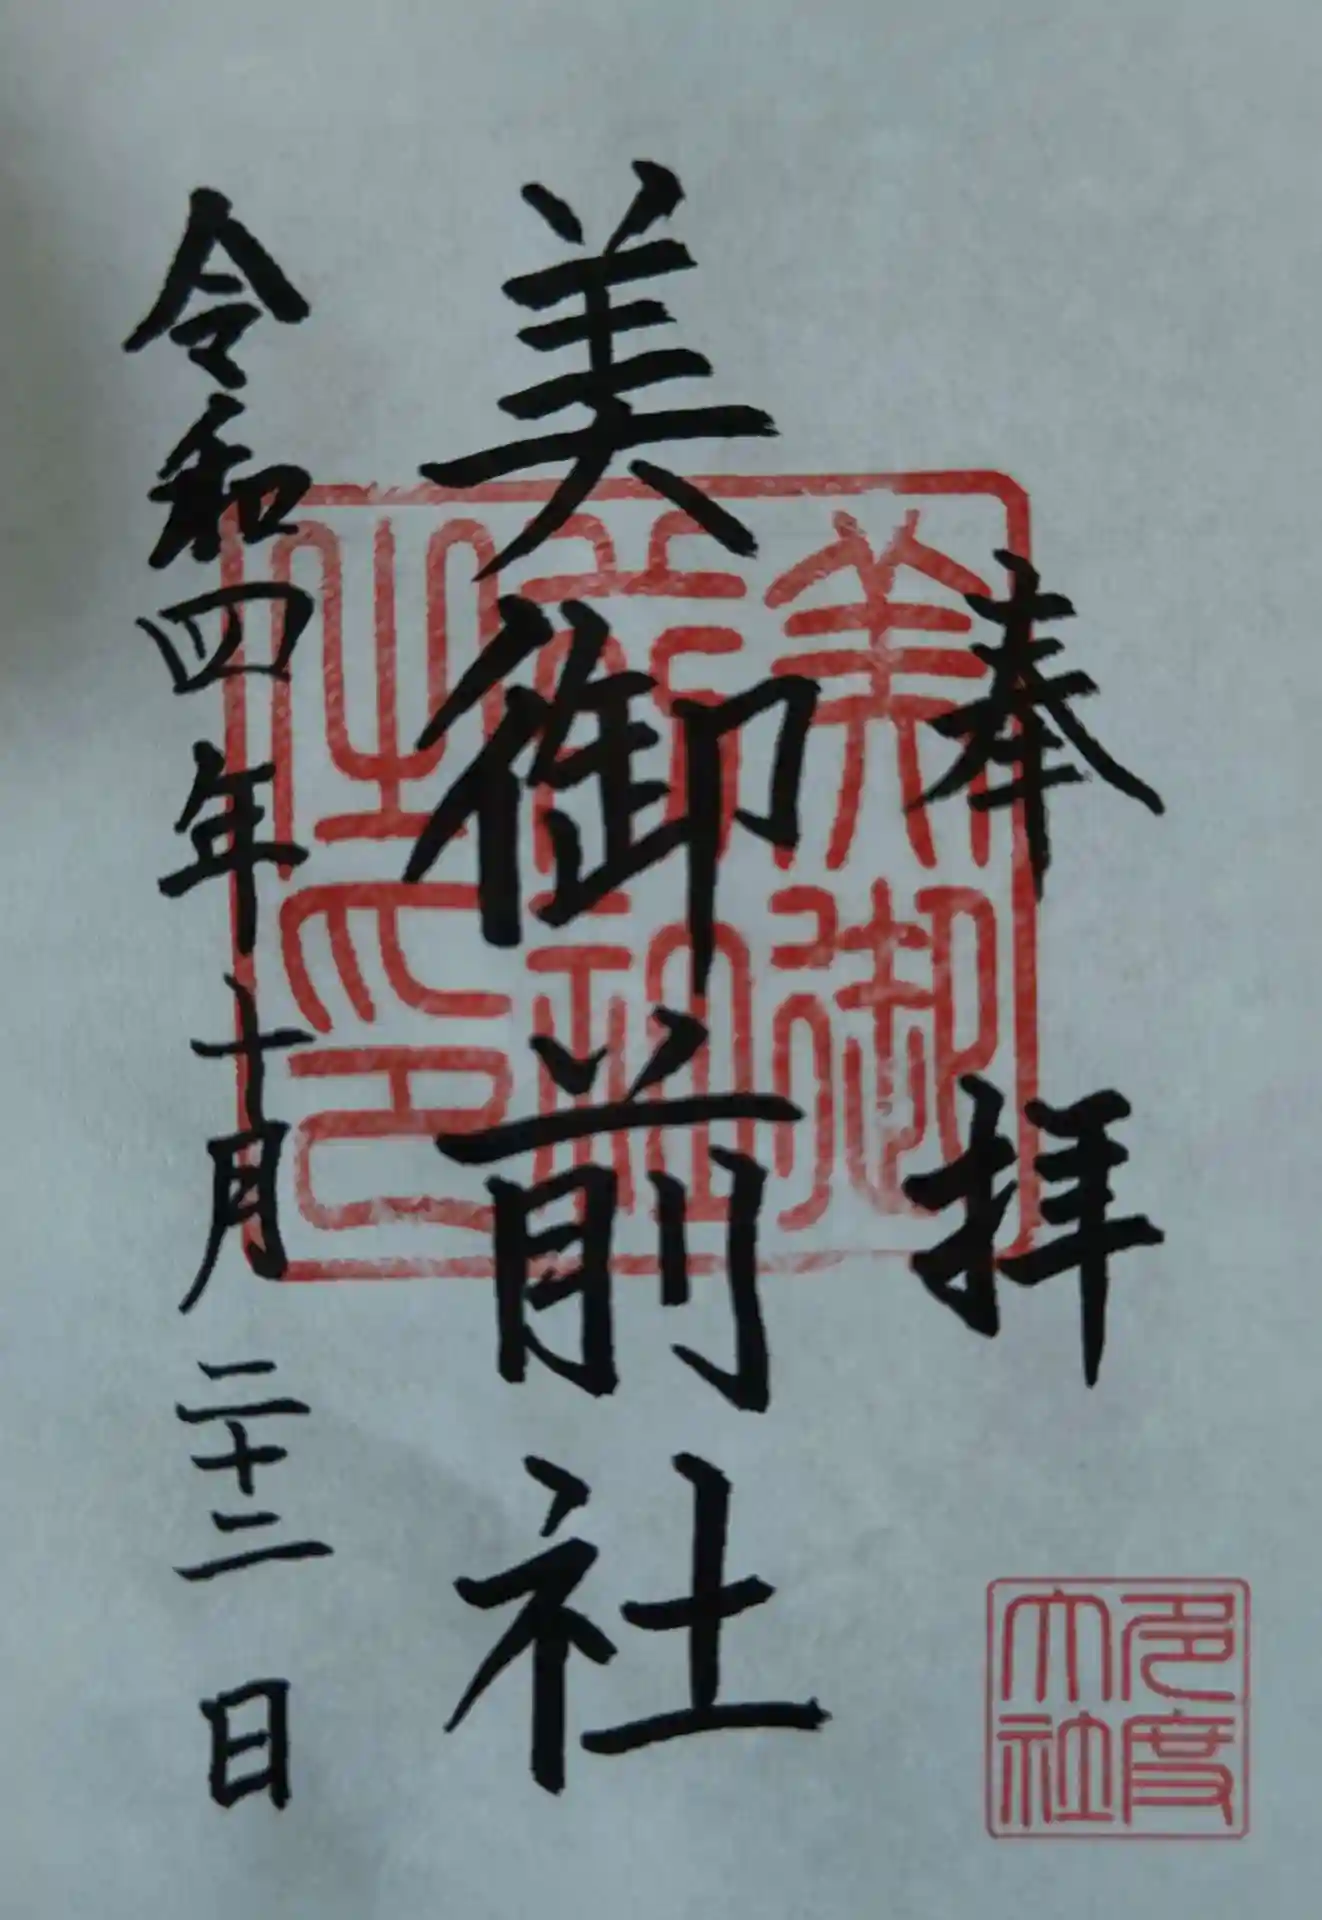 奉拝
美御前社
令和四年十月二十二日
美御
前社
之印
多度
大社